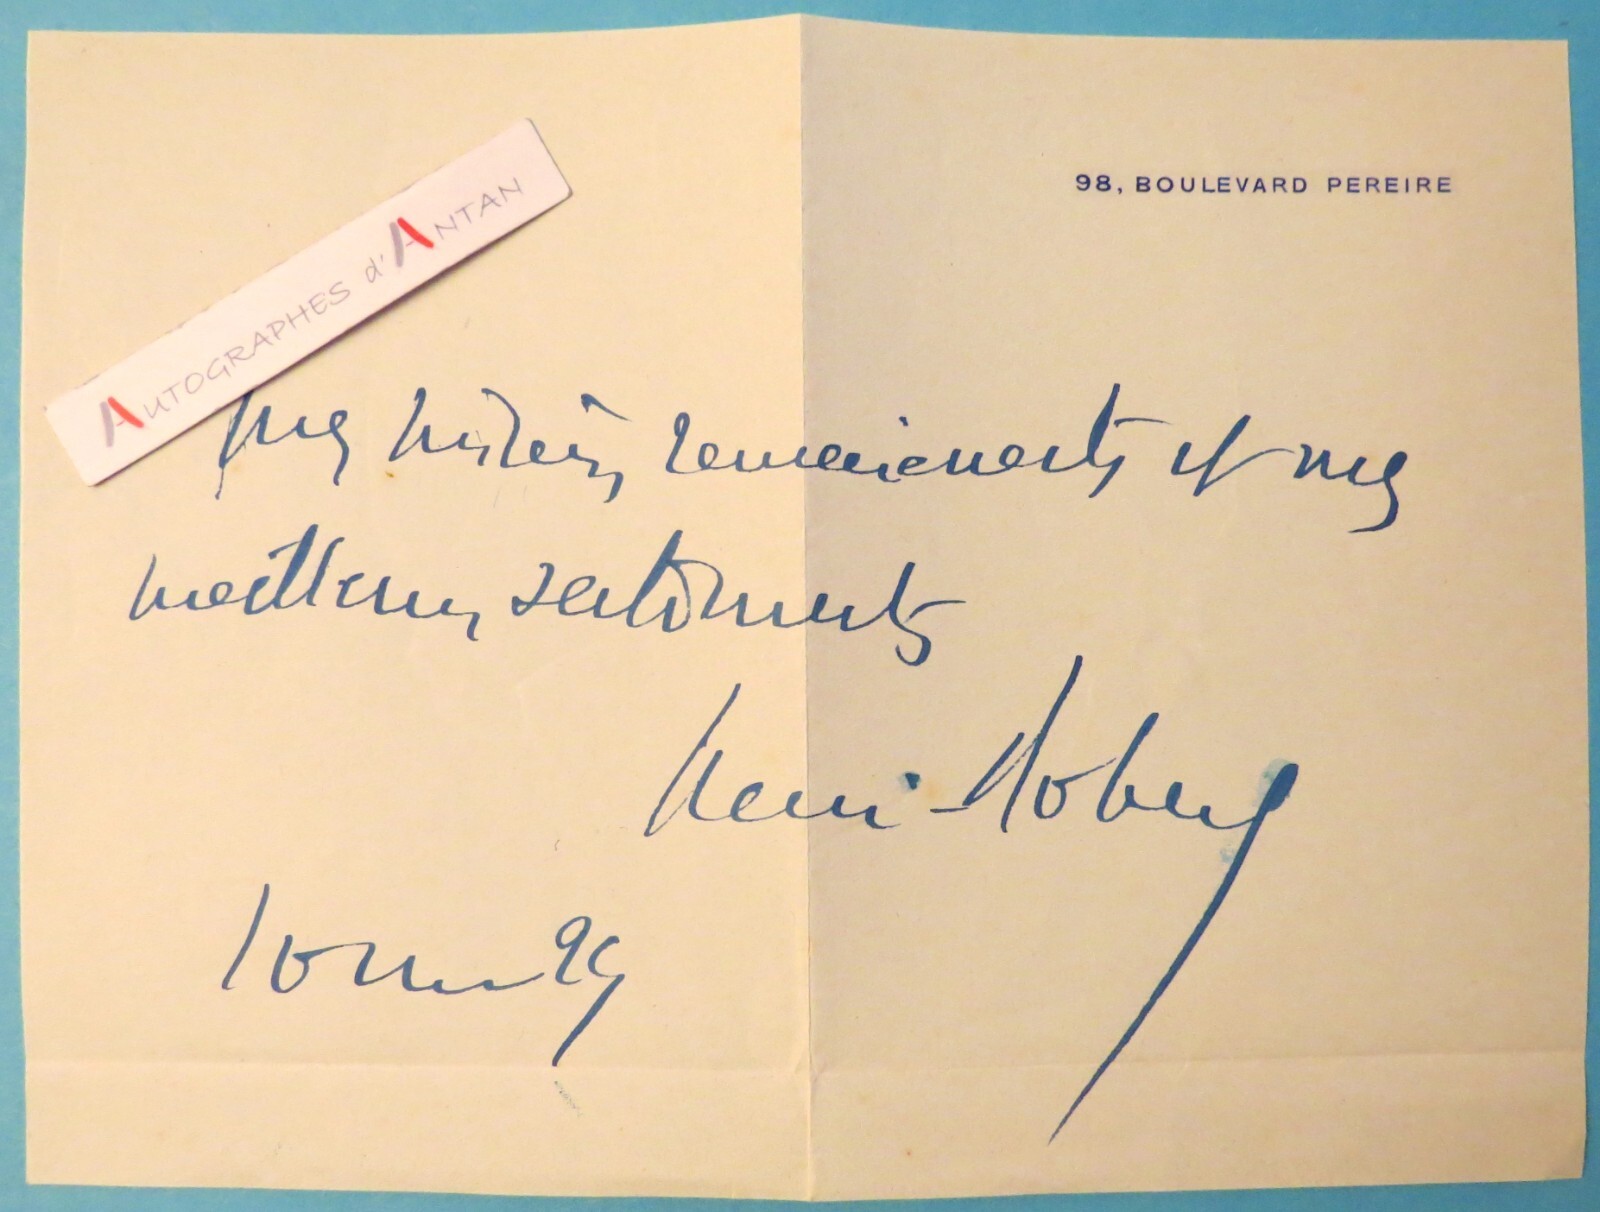 AUTOGRAPHES d'ANTAN
98, BOULEVARD PEREIRE
mes remerciements et mes
meilleurs sentiments
Henri-Robert
10 mars 29